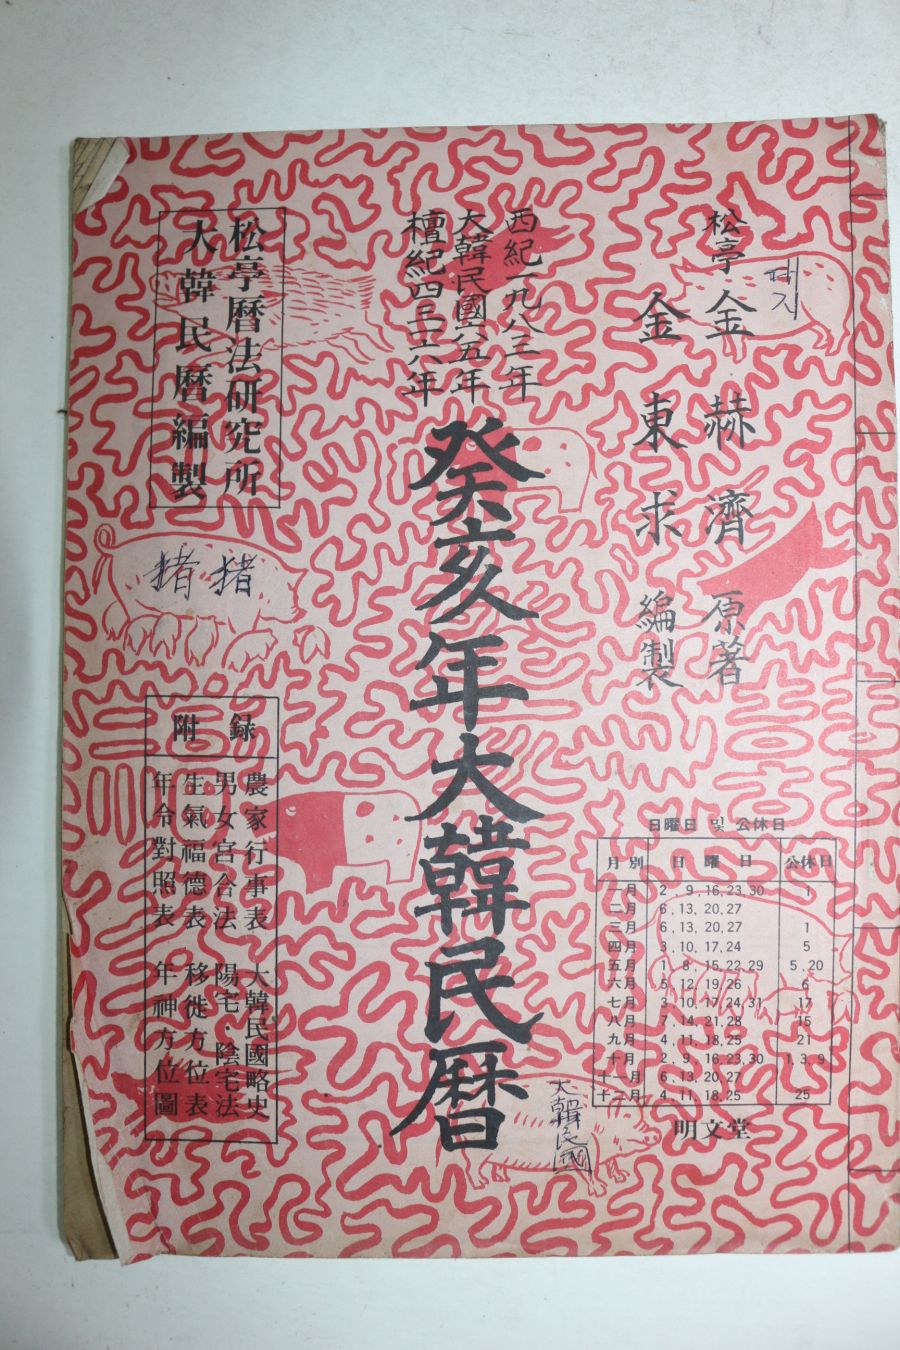 松亭 金赫濟 原著
金東求 編製
돼지
西紀一九八三年
大韓民國六五年
檀紀四三一六年
癸亥年大韓民曆
松亭曆法研究所
大韓民曆編製
猪猪
附錄
農家行事表 大韓民國略史
男女宮合法 陽宅·陰宅法
生氣福德表 移徙方位表
年令對照表 年神方位圖
日曜日 및 公休日
月別 日曜日 公休日
一月 2, 9, 16, 23, 30 1
二月 6, 13, 20, 27
三月 6, 13, 20, 27 1
四月 3, 10, 17, 24 5
五月 1, 8, 15, 22, 29 5, 20
六月 5, 12, 19, 26 6
七月 3, 10, 17, 24, 31 17
八月 7, 14, 21, 28 15
九月 4, 11, 18, 25 21
十月 2, 9, 16, 23, 30 1, 3, 9
十一月 6, 13, 20, 27
十二月 4, 11, 18, 25 25
明文堂
大韓民國